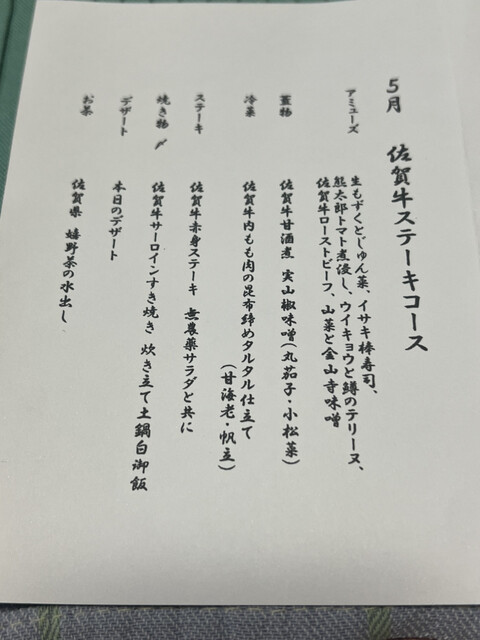 5月 佐賀牛ステーキコース
アミューズ
生もずくとじゅん菜、イサキ棒寿司、
熊太郎トマト煮浸し、ウイキョウと鱒のテリーヌ、
佐賀牛ローストビーフ、山菜と金山寺味噌
蓋物
佐賀牛甘酒煮 実山椒味噌(丸茄子・小松菜)
冷菜
佐賀牛内もも肉の昆布締めタルタル仕立て
(甘海老・帆立)
ステーキ
佐賀牛赤身ステーキ 無農薬サラダと共に
焼き物〆
佐賀牛サーロインすき焼き 炊き立て土鍋白御飯
デザート
本日のデザート
お茶
佐賀県 嬉野茶の水出し